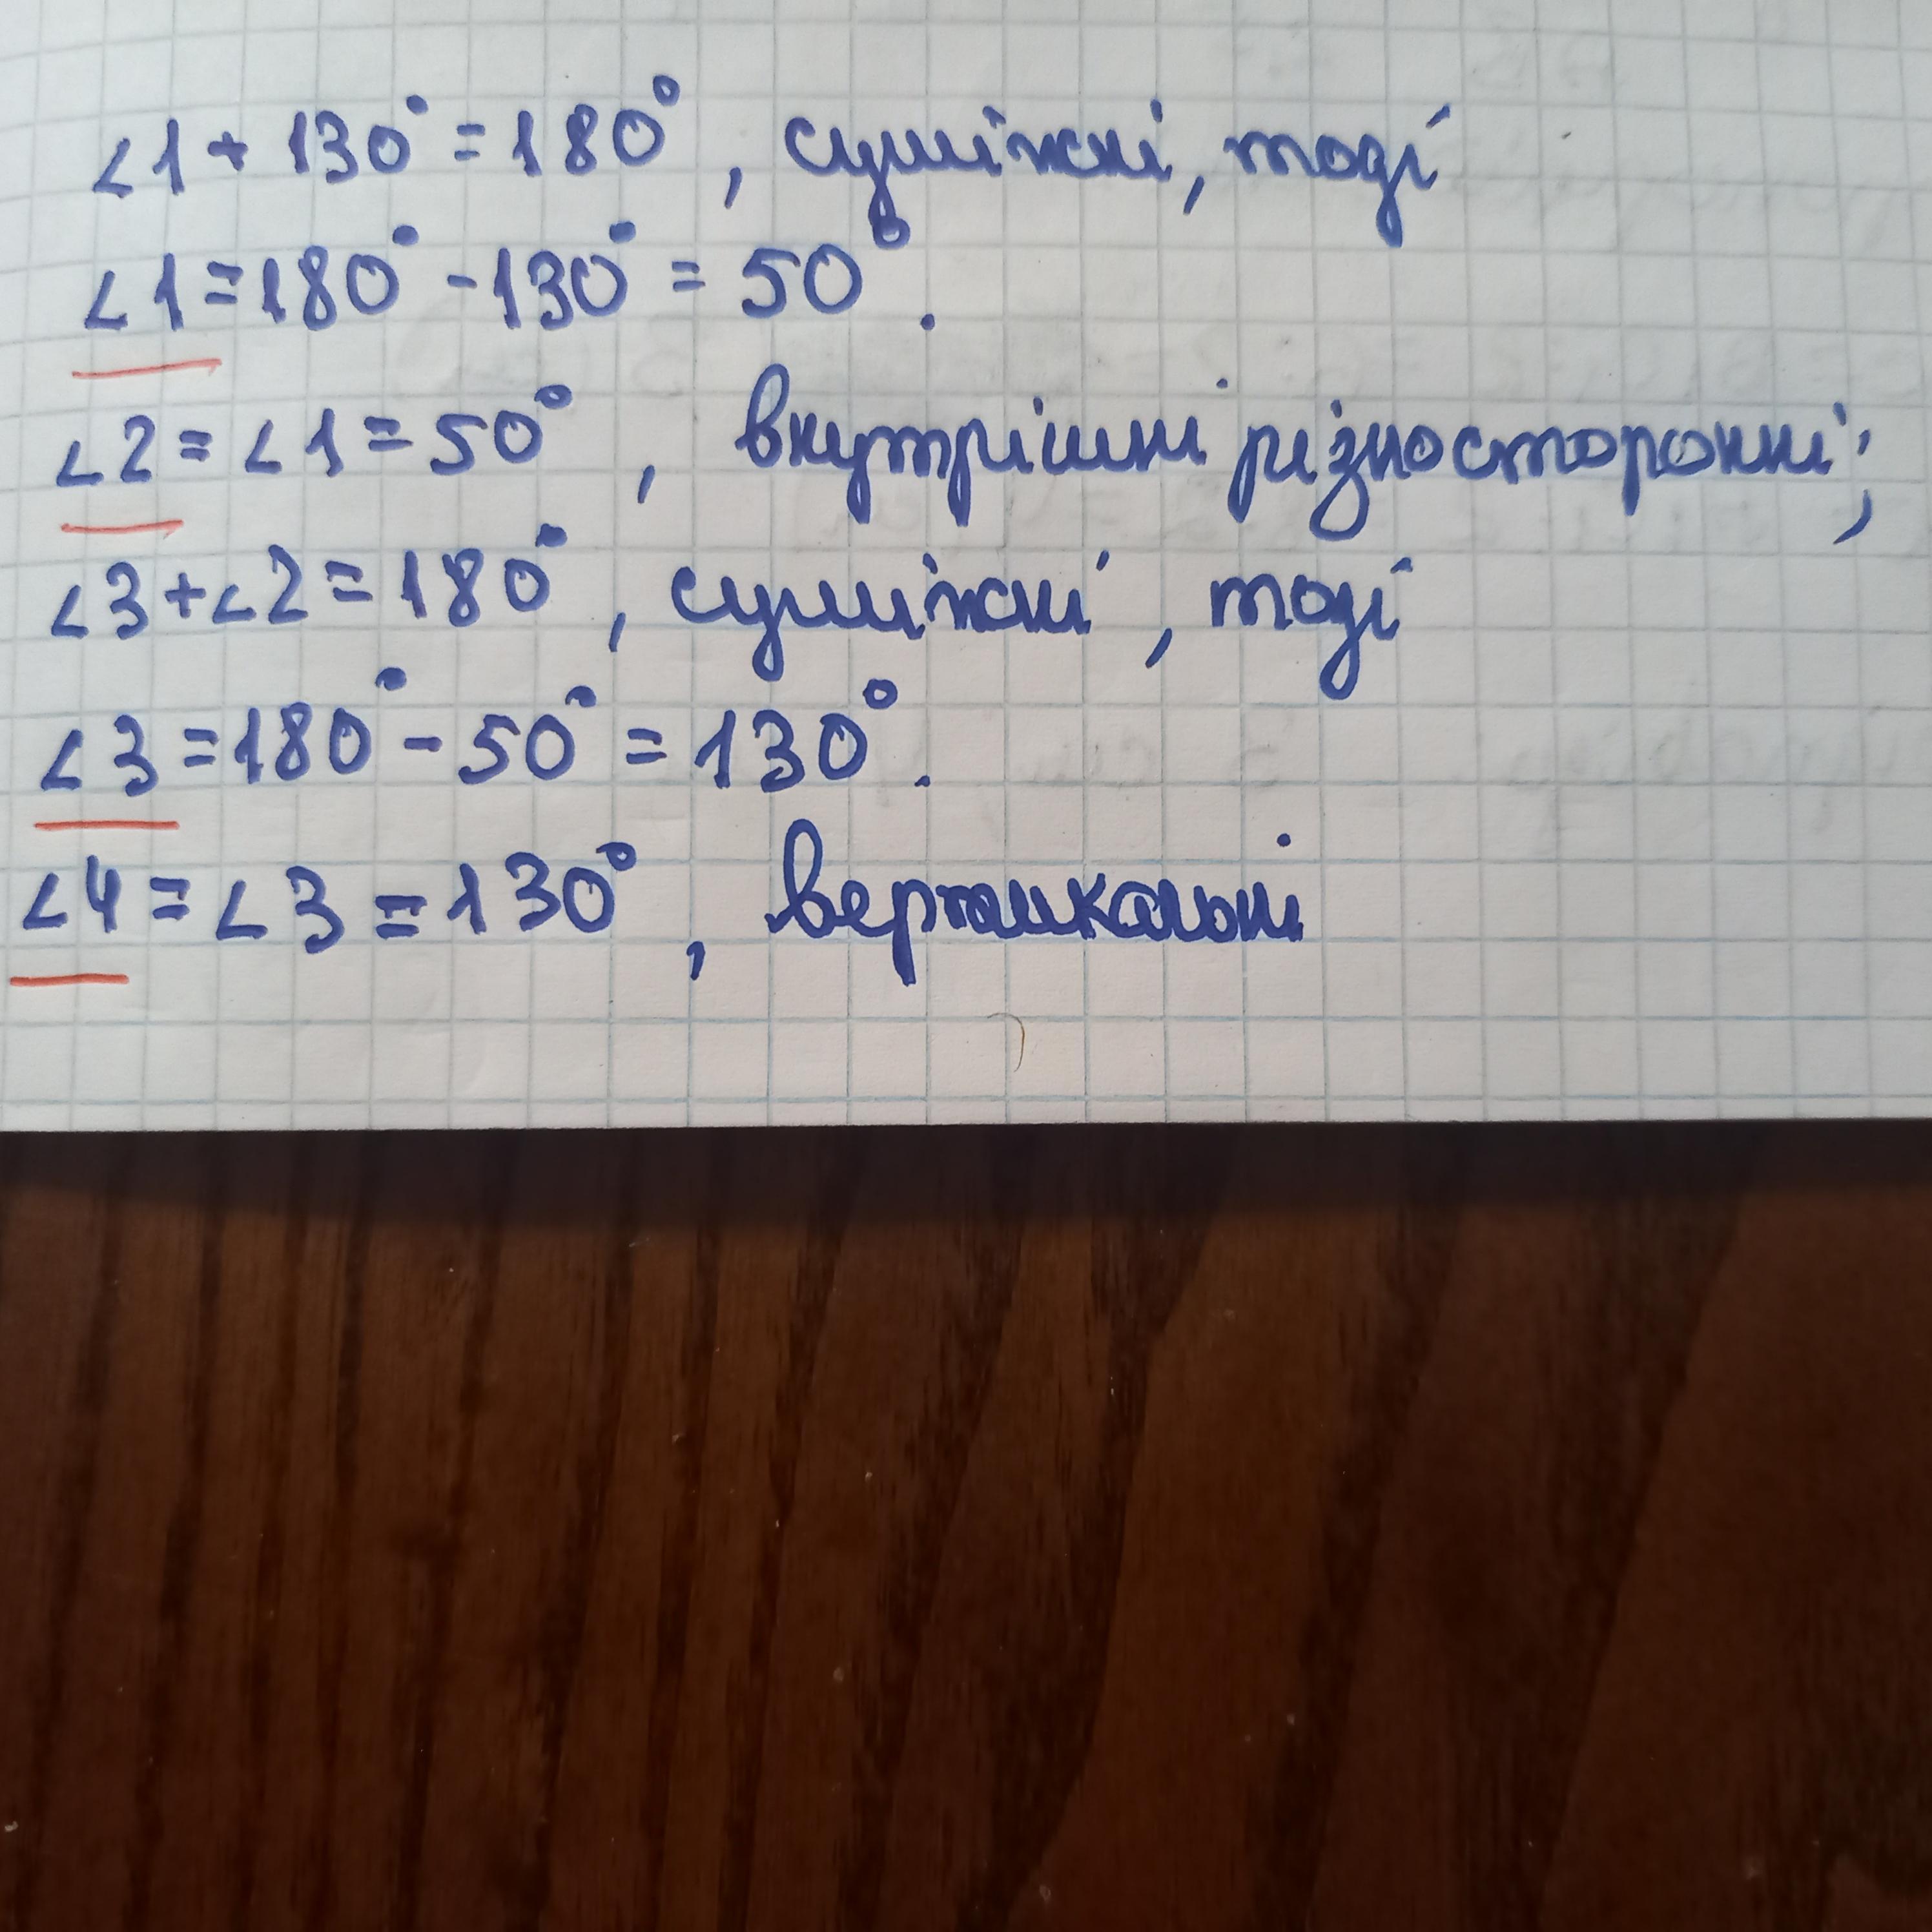 ∠1 + 130° = 180°, суміжні, тоді
∠1 = 180° - 130° = 50°.
∠2 = ∠1 = 50°, внутрішні різносторонні;
∠3 + ∠2 = 180°, суміжні, тоді
∠3 = 180° - 50° = 130°.
∠4 = ∠3 = 130°, вертикальні